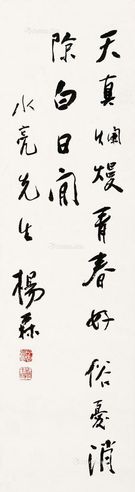 天真烂熳青春好俗憂消
除白日间
水亮先生
楊森